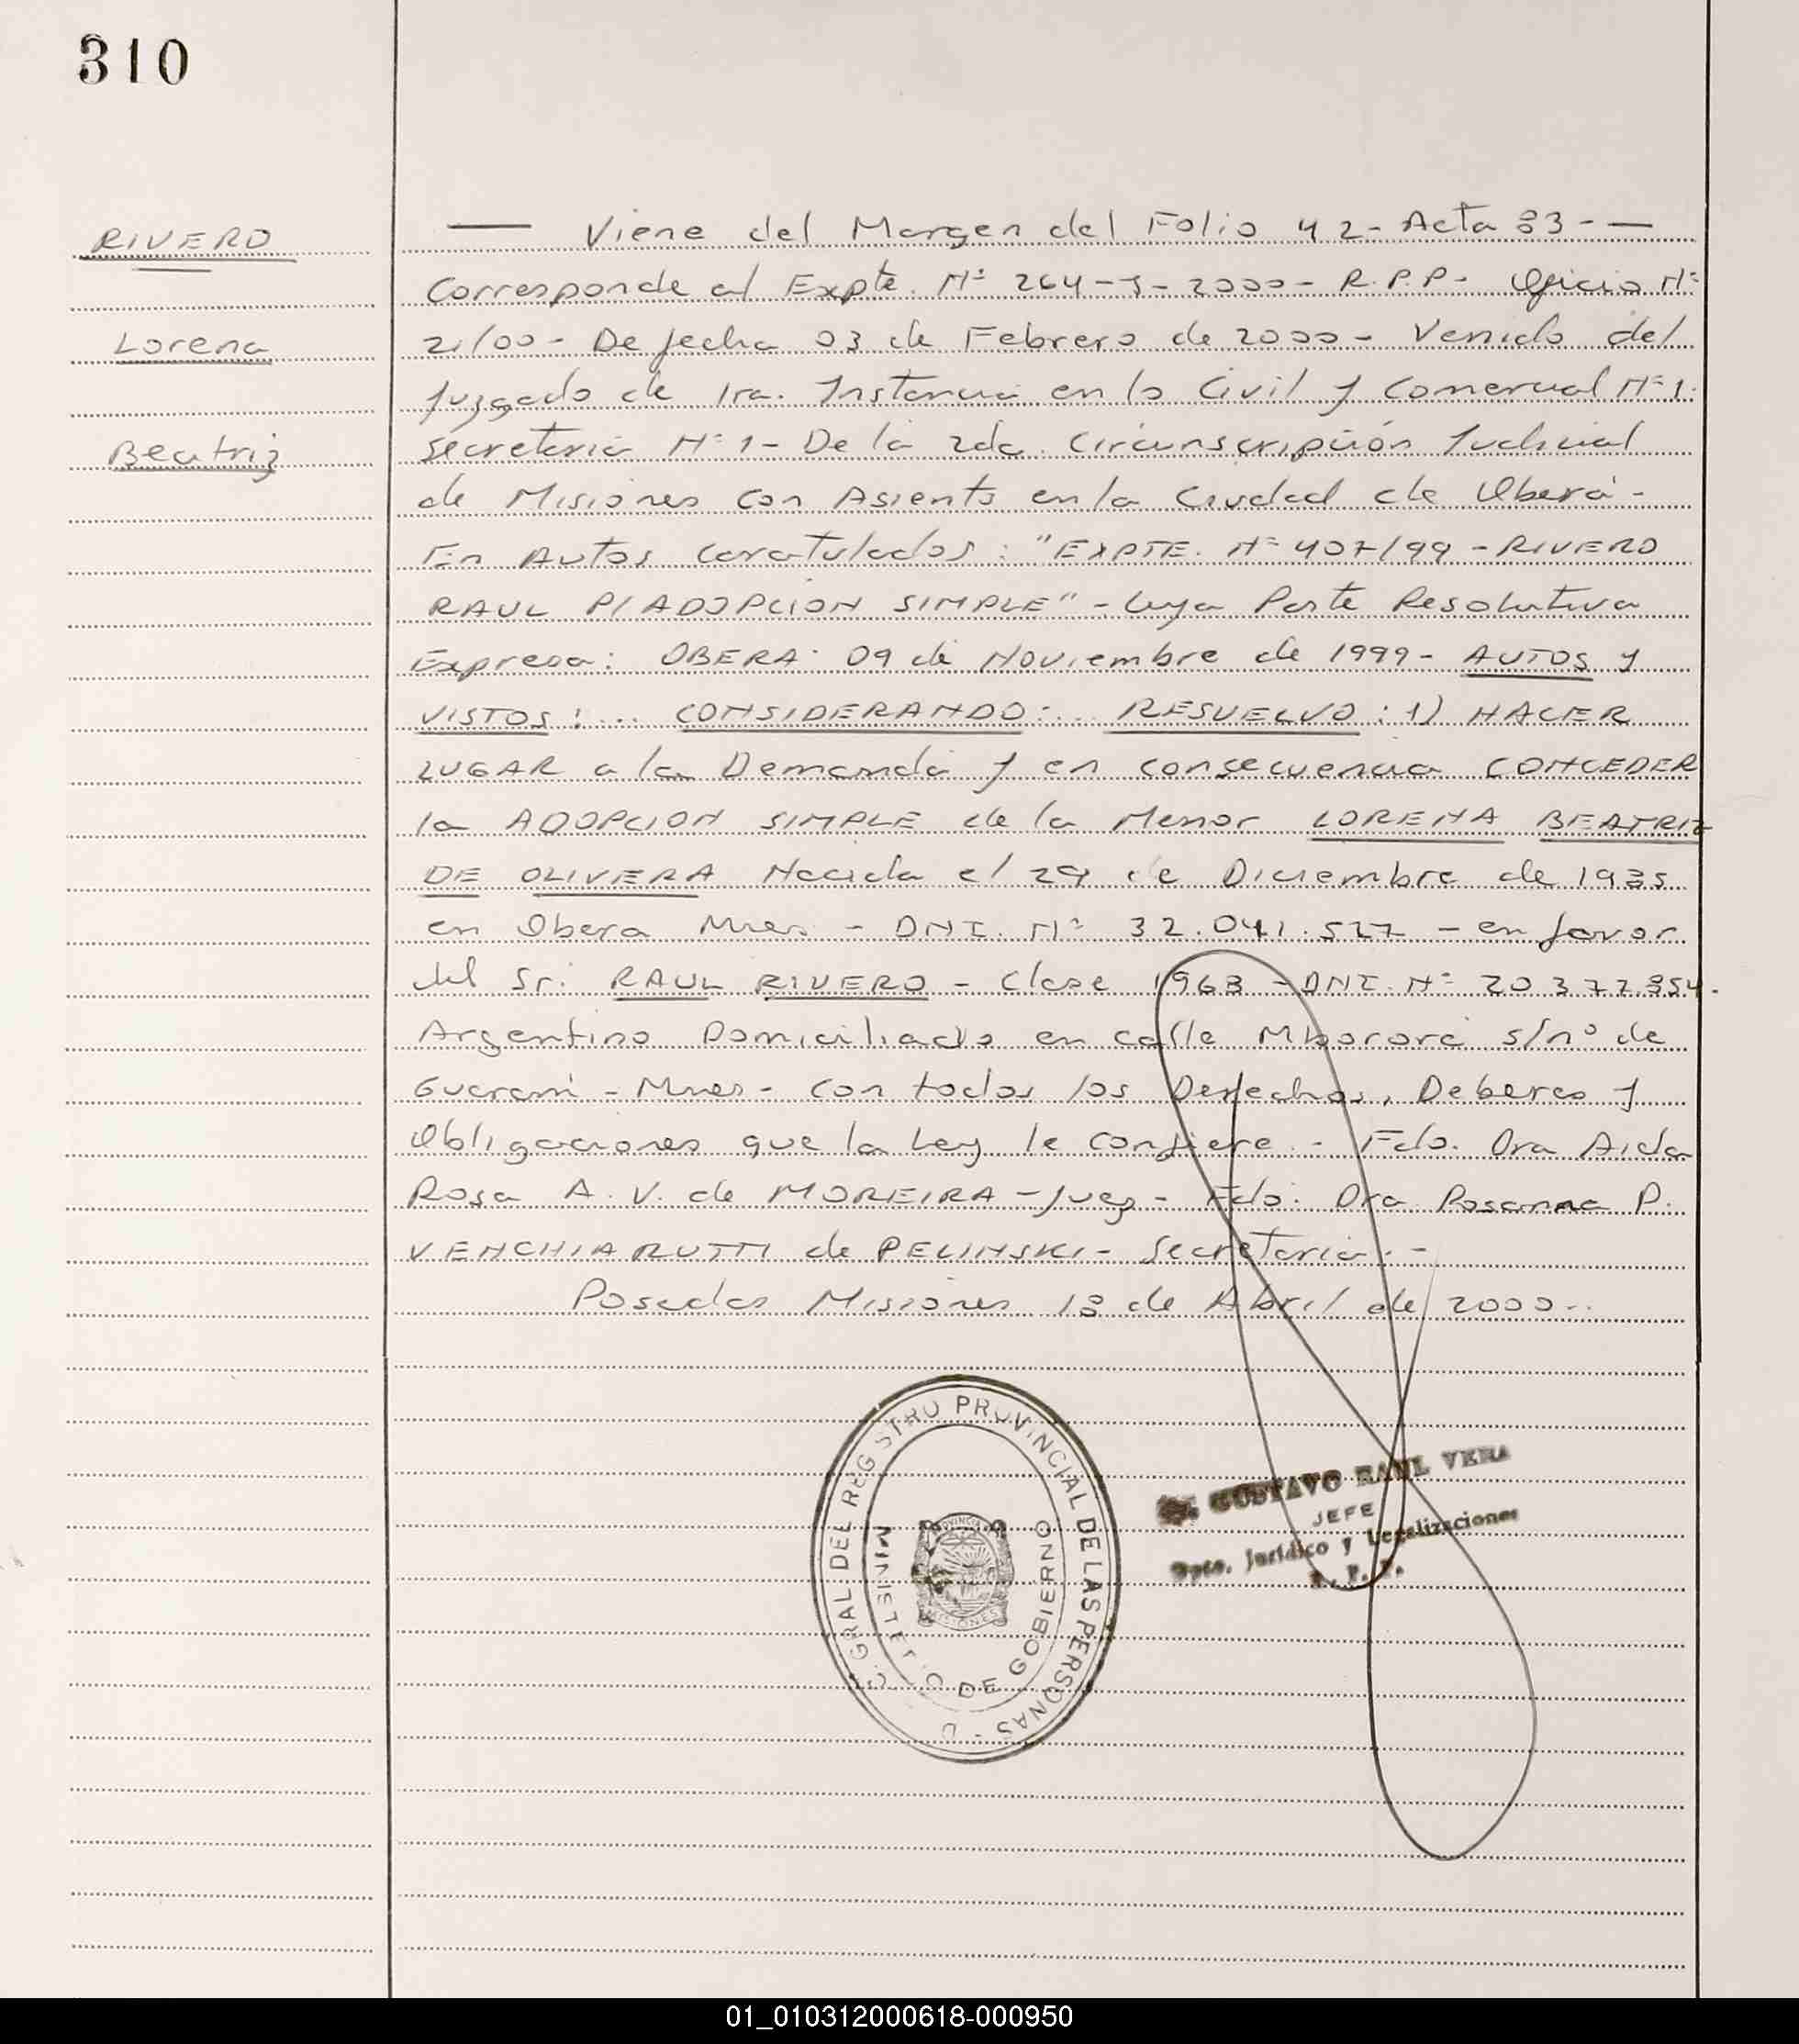 310
RIVERO
Lorena
Beatriz
— Viene del Margen del Folio 42- Acta 83- —
Corresponde al Expte. Nº 264-J-2000- R.P.P- Oficio Nº
21/00- De fecha 03 de Febrero de 2000- Venido del
Juzgado de 1ra. Instancia en lo Civil y Comercial Nº 1.
Secretaria Nº 1- De la 2da. Circunscripción Judicial
de Misiones con Asiento en la Ciudad de Oberá-
En Autos Caratulados: "EXPTE. Nº 407/99 - RIVERO
RAUL P/ADOPCION SIMPLE"- Cuya Parte Resolutiva
Expresa: OBERA. 09 de Noviembre de 1999- AUTOS y
VISTOS:... CONSIDERANDO:.. RESUELVO: 1) HACER
LUGAR a la Demanda y en consecuencia CONCEDER
la ADOPCION SIMPLE de la Menor LORENA BEATRIZ
DE OLIVERA Nacida el 29 de Diciembre de 1985
en Obera Mnes. - DNI. Nº 32.041.527 - en favor
del Sr. RAUL RIVERO - Clase 1968 - DNI. Nº 20.377.854.
Argentino Domiciliado en calle Mbororé s/nº de
Guaraní - Mnes- con todos los Derechos, Deberes y
Obligaciones que la Ley le confiere. - Fdo. Dra Aida
Rosa A. V. de MOREIRA - Juez - Fdo: Dra Rosanna P.
VENCHIARUTTI de PELINSKI- Secretaria.-
Posadas Misiones 18 de Abril de 2000.-
GRAL DEL REGISTRO PROVINCIAL DE LAS PERSONAS -
MINISTERIO DE GOBIERNO
PROVINCIA
MISIONES
GUSTAVO RAUL VERA
JEFE
Dpto. Jurídico y Legalizaciones
R. P. P.
01_010312000618-000950